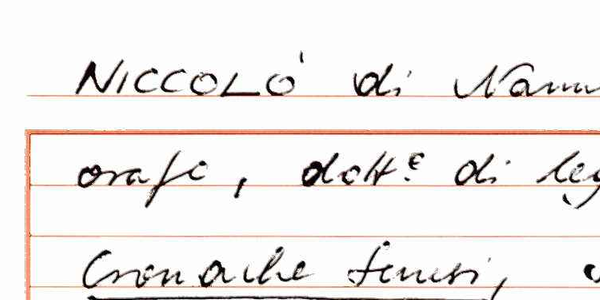 NICCOLÒ di Nann
orafo, dott.e di leg
Cronache senesi,